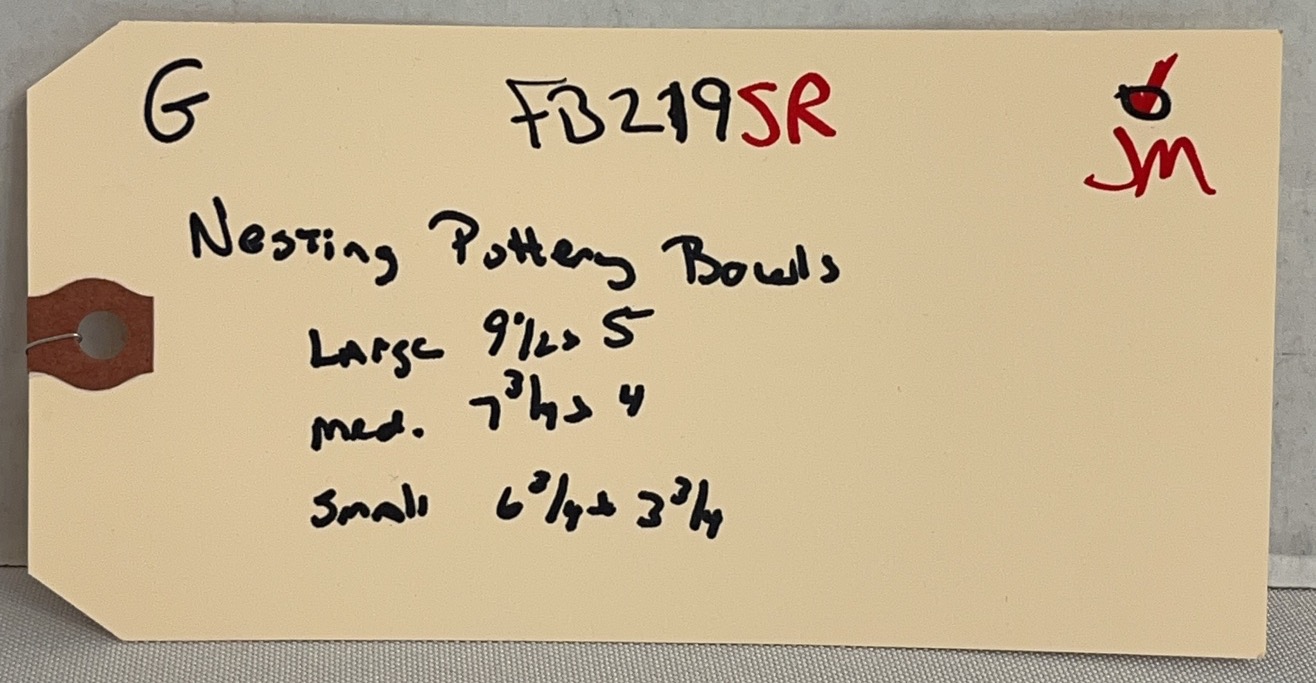 G FB219SR
JM
Nesting Pottery Bowls
Large 9 1/2 x 5
med. 7 3/4 x 4
Small 6 3/4 x 3 3/4